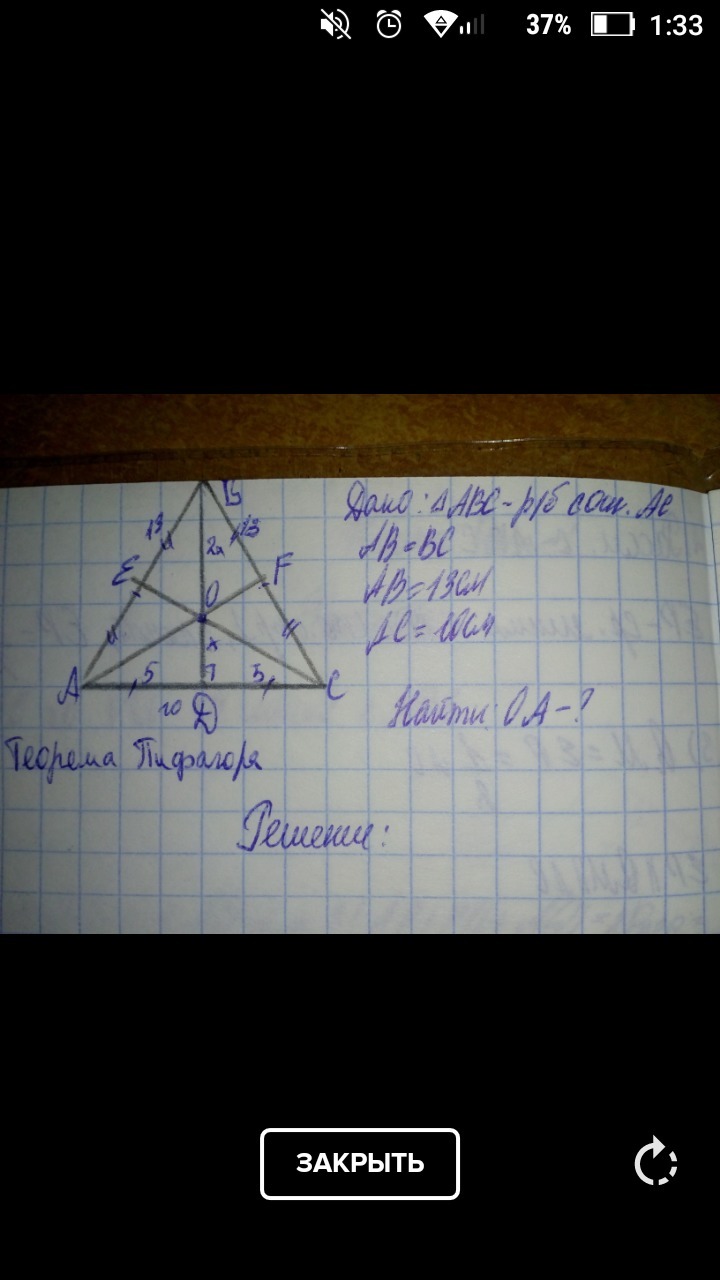 37% 1:33
B
13 13
2x
E F
O
x
5 5
A C
10 D
Дано: △ABC - р/б с осн. AC
AB = BC
AB = 13см
AC = 10см
Найти: OA - ?
Теорема Пифагора
Решение:
ЗАКРЫТЬ